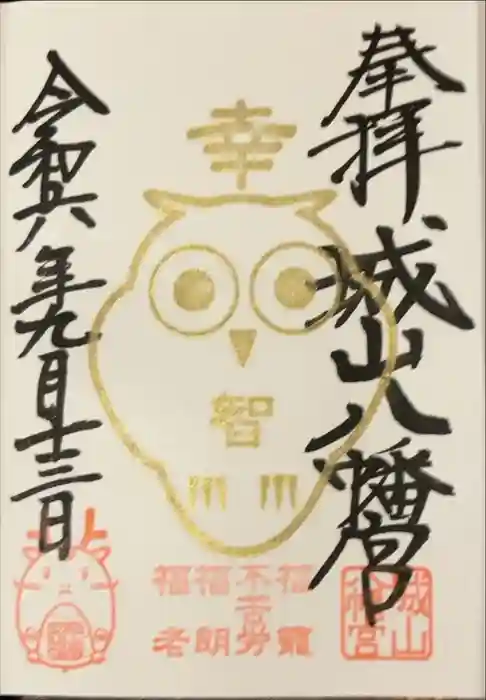 奉拝
城山八幡宮
幸
智
福籠
不苦労
福朗
福老
城山
令和六年九月十三日